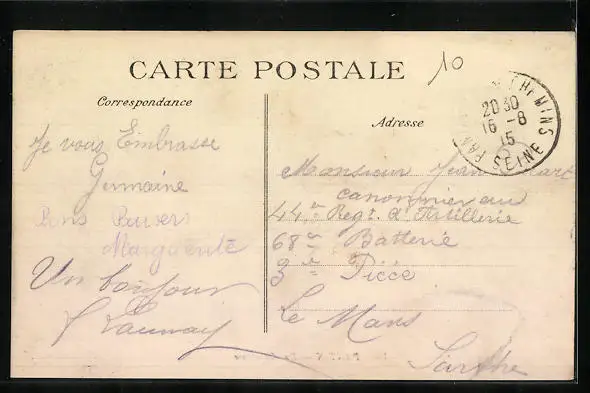 10
CARTE POSTALE
Correspondance
Je vous Embrasse
Germaine
Bons Baisers
Marguerite
Un bonjour
Launay
CHEMINS
20 30
16 - 8
15
SEINE
Adresse
Monsieur
canonnier au
44e Regt. d'Artillerie
68e Batterie
3e Pièce
Le Mans
Sarthe